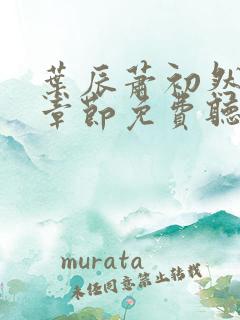 葉辰蕭初然
章節免費聽
murata
未經同意禁止轉載